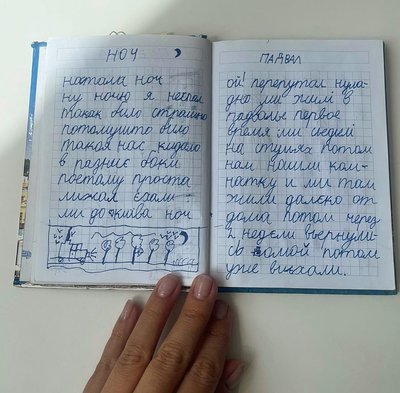 НОЧ
настала ноч
ну ночю я неспал
такак било страшно
потомушто било
такая нас кидало
в разние боки
поетаму проста
лижал ехали
ми до киева ноч
ПАДВАЛ
ой! перепутал нула-
дно ми жилі в
падвале первое
время ми сиделі
на стулях потом
нам нашли ком-
натку и ми там
жили далеко от
дома потом через
2 недели вернули-
сь домой потом
уже виехали.